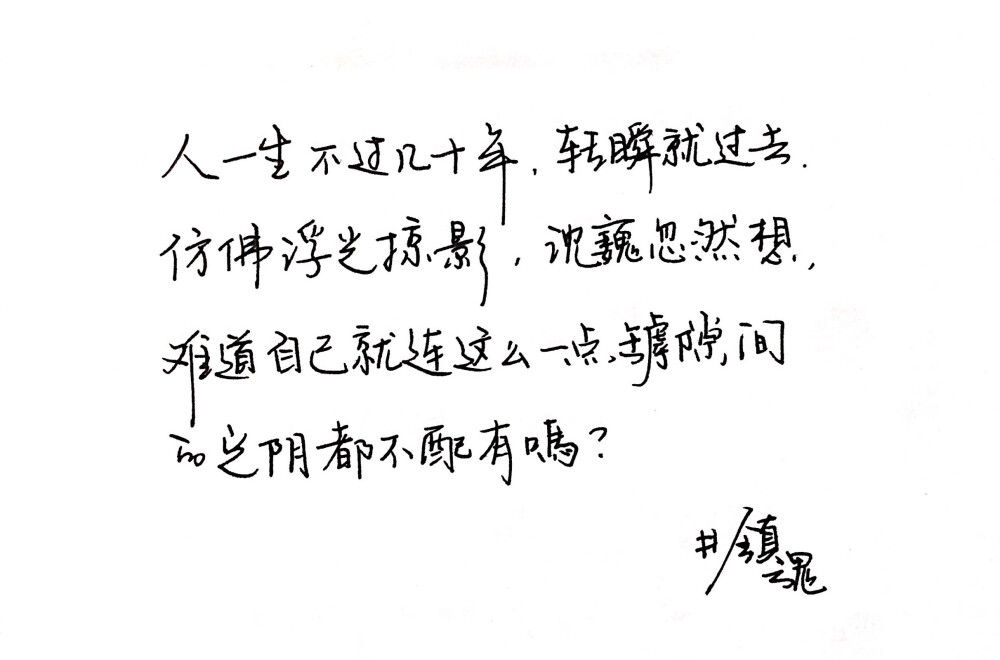 人一生不过几十年,转瞬就过去.
仿佛浮光掠影,沈巍忽然想,
难道自己就连这么一点罅隙间
的光阴都不配有嗎?
#镇魂